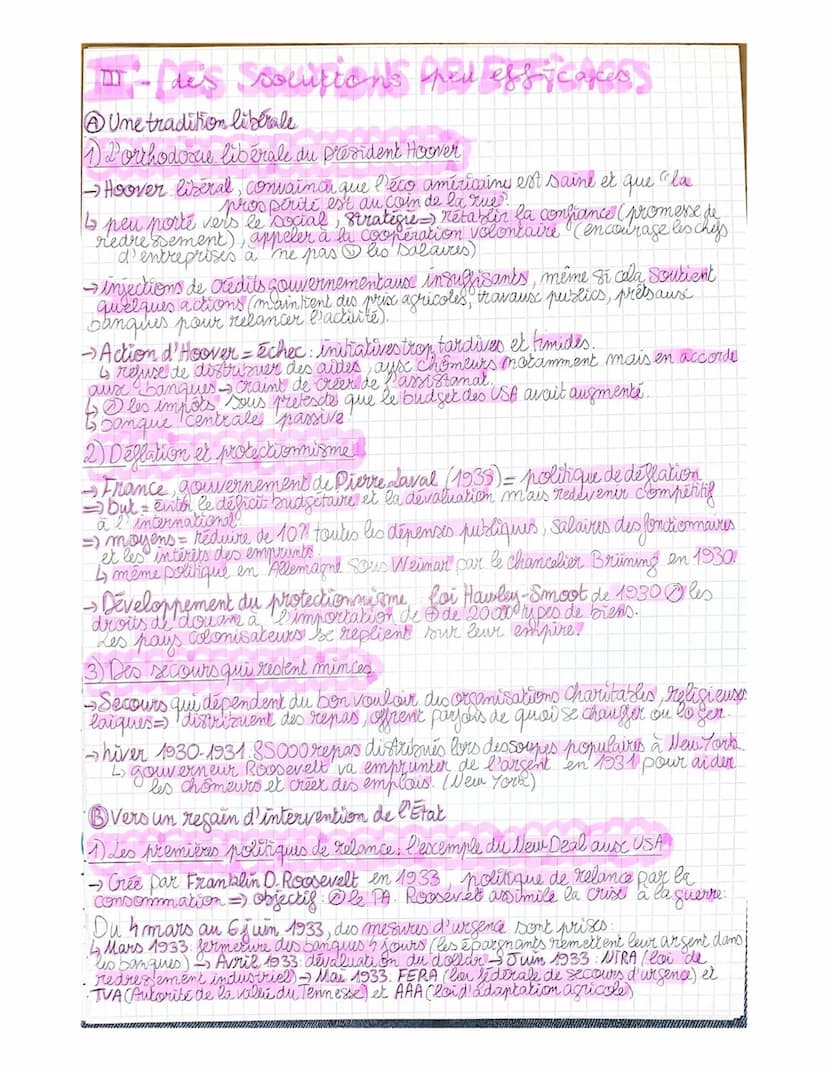 III - des solutions peu efficaces
Ⓐ Une tradition libérale
1) L'orthodoxie libérale du président Hoover
→ Hoover libéral, convaincu que l'éco américaine est saine et que "la
prospérité est au coin de la rue".
↳ peu porté vers le social, stratégie => rétablir la confiance (promesse de
redressement), appeler à la coopération volontaire (encourage les chefs
d'entreprises à ne pas ↘ les salaires)
→ injections de crédits gouvernementaux insuffisants, même si cela soutient
quelques actions (maintient des prix agricoles, travaux publics, prêts aux
banques pour relancer l'activité).
→ Action d'Hoover = échec : initiatives trop tardives et timides.
↳ refuse de distribuer des aides, aux chômeurs notamment mais en accorde
aux banques → craint de créer de l'assistanat.
↳ ↗ les impôts sous prétexte que le budget des USA avait augmenté.
↳ banque centrale passive
2) Déflation et protectionnisme
→ France, gouvernement de Pierre Laval (1935) = politique de déflation
=> but = éviter le déficit budgétaire et la dévaluation mais redevenir compétitif
à l'international
=> moyens = réduire de 10% toutes les dépenses publiques, salaires des fonctionnaires
et les intérêts des emprunts.
↳ même politique en Allemagne sous Weimar par le chancelier Brüning en 1930.
→ Développement du protectionnisme, loi Hawley-Smoot de 1930 ↗ les
droits de douane à l'importation de ⊕ de 20000 types de biens.
Les pays colonisateurs se replient sur leur empire.
3) Des secours qui restent minces
→ Secours qui dépendent du bon vouloir des organisations charitables, religieuses
laïques => distribuent des repas, offrent parfois de quoi se chauffer ou loger.
→ hiver 1930-1931 : 85000 repas distribués lors des soupes populaires à New York.
↳ gouverneur Roosevelt va emprunter de l'argent en 1931 pour aider
les chômeurs et créer des emplois. (New York)
Ⓑ Vers un regain d'intervention de l'État
1) Les premières politiques de relance : l'exemple du New Deal aux USA
→ Créé par Franklin D. Roosevelt en 1933, politique de relance par la
consommation => objectif : ↗ le PA. Roosevelt assimile la crise à la guerre.
Du 4 mars au 6 juin 1933, des mesures d'urgence sont prises :
↳ Mars 1933 : fermeture des banques 4 jours (les épargnants remettent leur argent dans
les banques) → Avril 1933 : dévaluation du dollar → Juin 1933 : NIRA (loi de
redressement industriel) → Mai 1933 FERA (loi fédérale de secours d'urgence) et
TVA (Autorité de la vallée du Tennesse) et AAA (loi d'adaptation agricole)